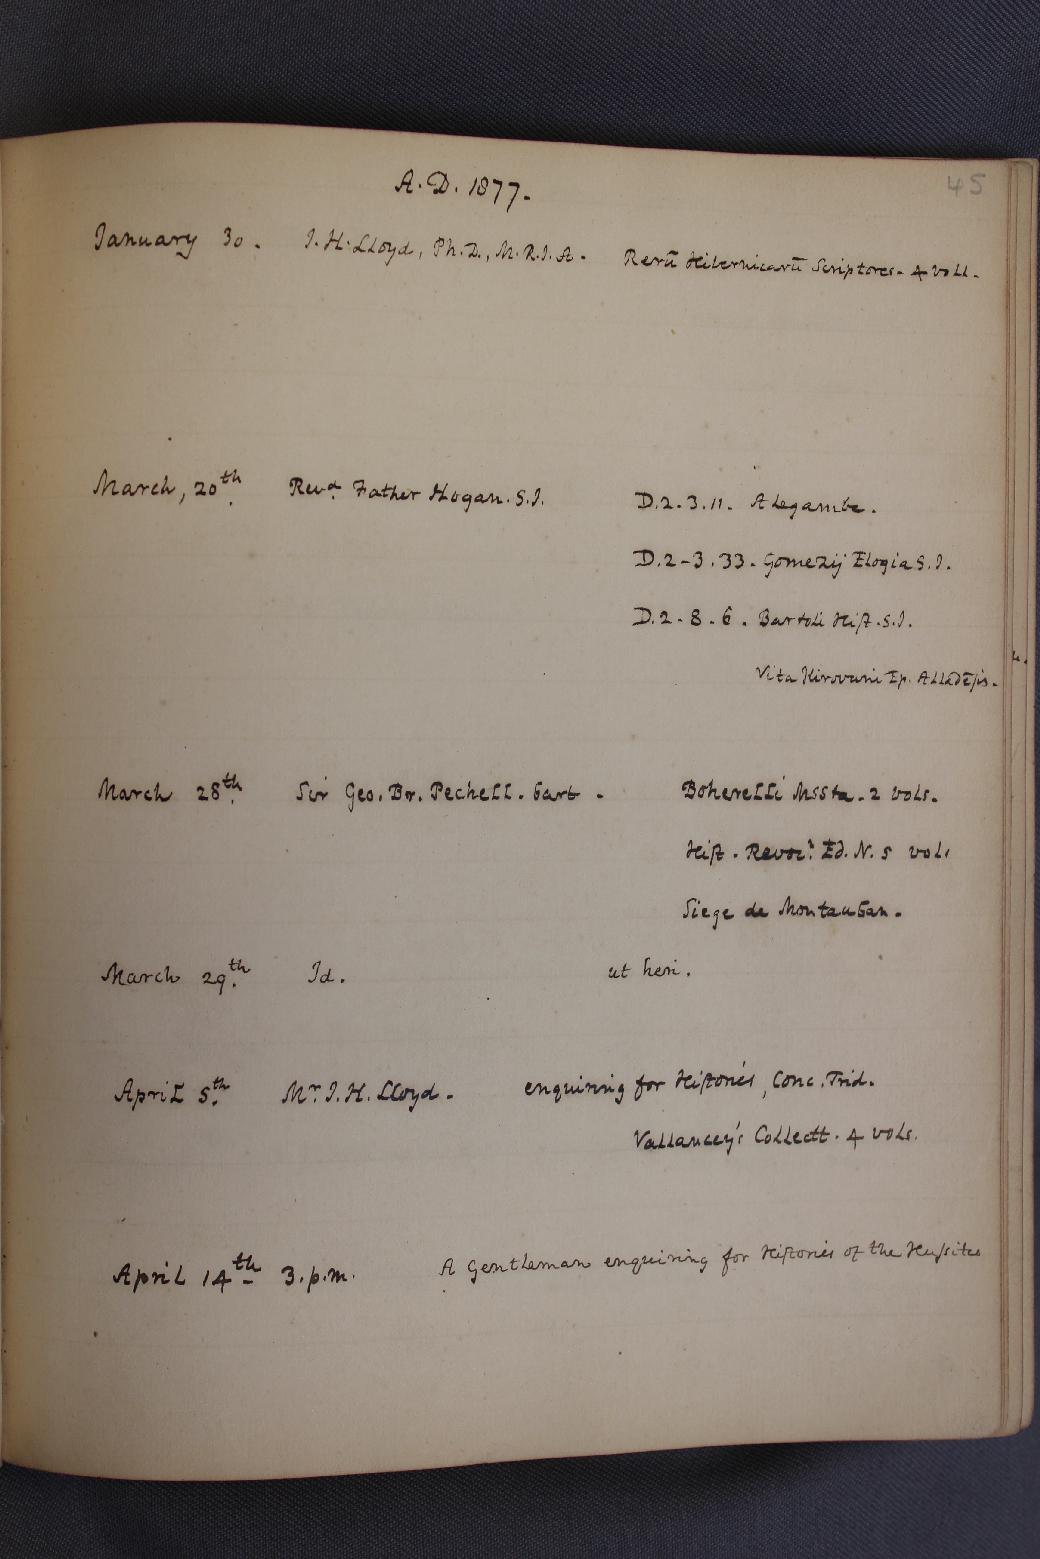 45
A.D. 1877.
January 30. J.H. Lloyd, Ph.D., M.R.I.A. Rerū Hibernicarū Scriptores. 4 voll.
March, 20th Revd Father Hogan. S.J. D.2.3.11. Alegambe.
D.2-3.33. Gomezij Elogia S.J.
D.2-8.6. Bartoli Hist. S.J.
Vita Kirovani Ep. Alladēsis.
March 28th Sir Geo. Br. Pechell. bart. Boherelli Mssta. 2 vols.
Hist. Revocn Ed. N. 5 vols
Siege de Montauban.
March 29th Id. ut heri.
April 5th Mr J.H. Lloyd. enquiring for Histories, Conc. Trid.
Vallancey's Collectt. 4 vols.
April 14th 3.p.m. A Gentleman enquiring for Histories of the Hussites